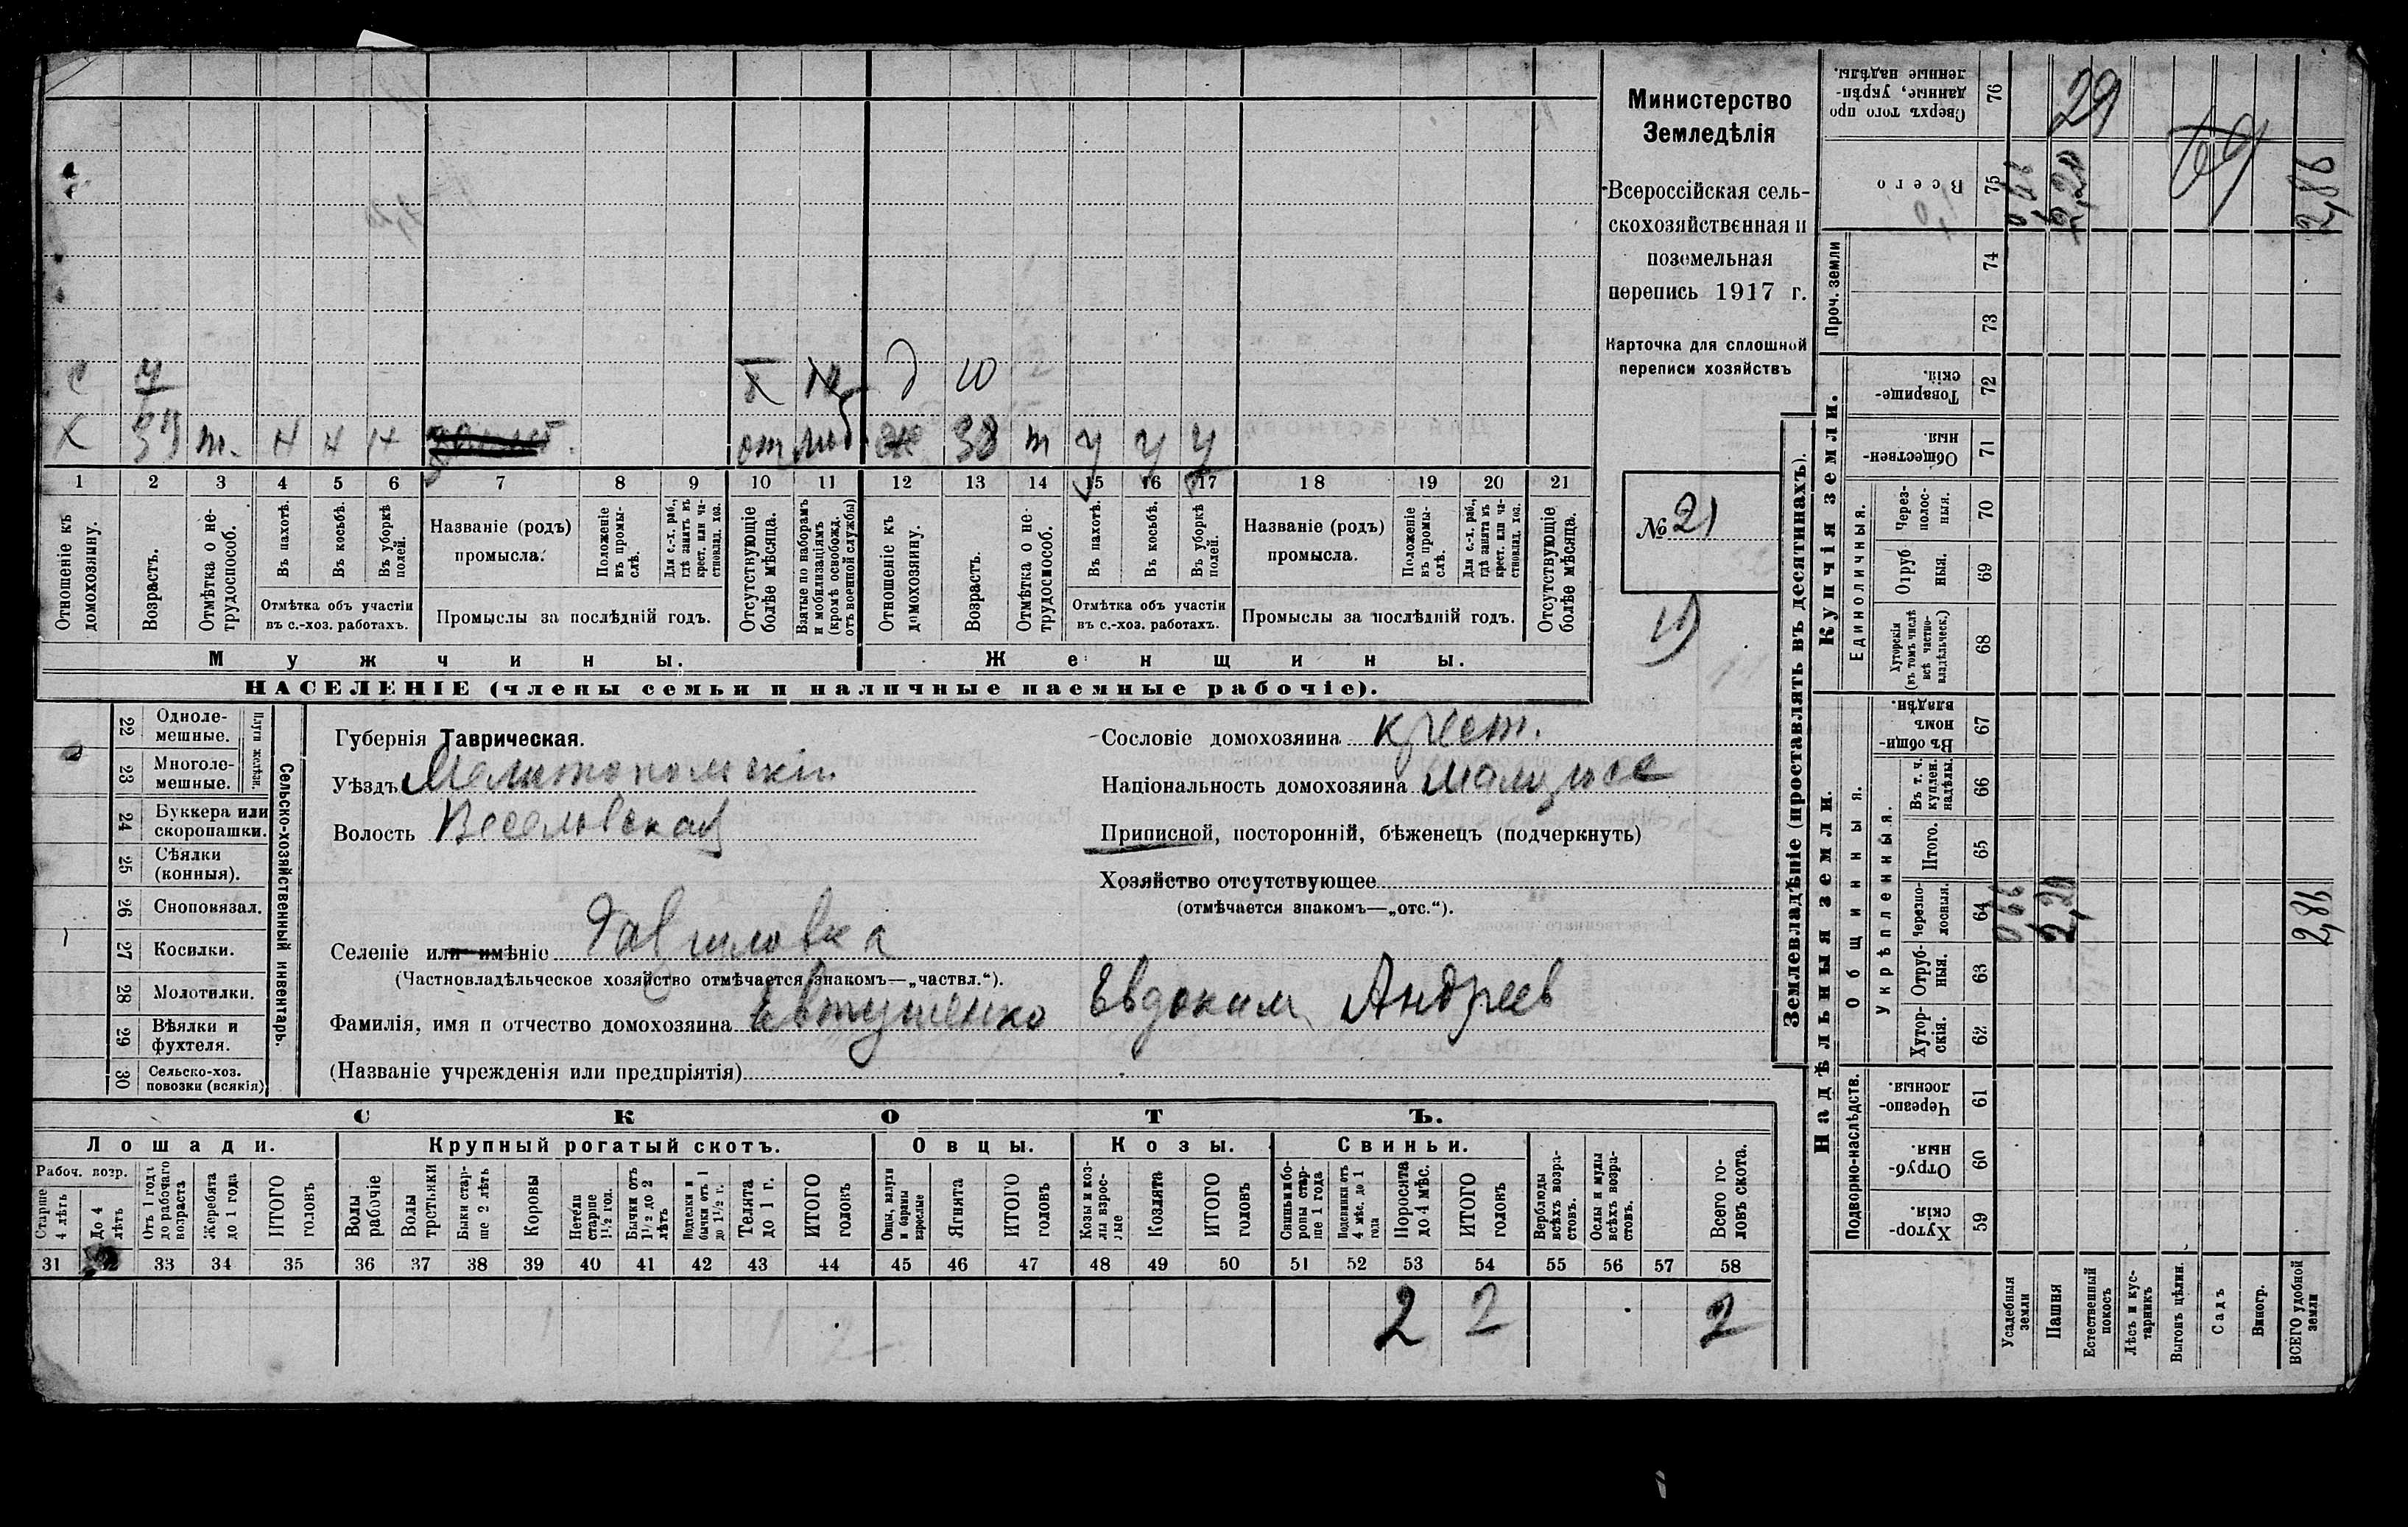 Министерство
Земледѣлія
Всероссійская сель-
скохозяйственная и
поземельная
перепись 1917 г.
Карточка для сплошной
переписи хозяйствъ
№ 21
с 4 д 10
х т. н н н от моб ж 38 т у у у
1 2 3 4 5 6 7 8 9 10 11 12 13 14 15 16 17 18 19 20 21
Отношеніе къ домохозяину.
Возрастъ.
Отмѣтка о не-трудоспособ.
Въ пахотѣ.
Въ косьбѣ.
Въ уборкѣ полей.
Отмѣтка объ участіи
въ с.-хоз. работахъ.
Названіе (родъ)
промысла.
Положеніе въ промы-слѣ.
Для с.-х. раб., гдѣ занятъ въ крест. или ча-стновлад. хоз.
Промыслы за послѣдній годъ.
Отсутствующіе болѣе мѣсяца.
Взятые по наборамъ и мобилизаціямъ (кромѣ освобожд. отъ военной службы)
Отношеніе къ домохозяину.
Возрастъ.
Отмѣтка о не-трудоспособ.
Въ пахотѣ.
Въ косьбѣ.
Въ уборкѣ полей.
Отмѣтка объ участіи
въ с.-хоз. работахъ.
Названіе (родъ)
промысла.
Положеніе въ промы-слѣ.
Для с.-х. раб., гдѣ занята въ крест. или ча-стновлад. хоз.
Промыслы за послѣдній годъ.
Отсутствующіе болѣе мѣсяца.
Мужчины.
Женщины.
НАСЕЛЕНІЕ (члены семьи и наличные наемные рабочіе).
Сельско-хозяйственный инвентарь.
Плуги желѣзн.
22 Однолемешные.
23 Многолемешные.
24 Буккера или скоропашки.
25 Сѣялки (конныя).
26 Сноповязал.
27 Косилки.
28 Молотилки.
29 Вѣялки и фухтеля.
30 Сельско-хоз. повозки (всякія)
Губернія Таврическая.
Уѣздъ Мелитопольскій
Волость Веселовская
Селеніе или имѣніе Гавриловка
(Частновладѣльческое хозяйство отмѣчается знакомъ—„частвл.“).
Фамилія, имя и отчество домохозяина Евтушенко Евдоким Андреев
(Названіе учрежденія или предпріятія)
Сословіе домохозяина крест.
Національность домохозяина малорос
Приписной, посторонній, бѣженецъ (подчеркнуть)
Хозяйство отсутствующее
(отмѣчается знакомъ—„отс.“).
СКОТЪ.
Лошади. Крупный рогатый скотъ. Овцы. Козы. Свиньи.
Рабоч. возр.
Старше 4 лѣтъ
До 4 лѣтъ
Отъ 1 года до рабочаго возраста
Жеребята до 1 года
ИТОГО головъ
Волы рабочіе
Волы третьяки
Быки старше 2 лѣтъ
Коровы
Нетели старше 1½ год.
Бычки отъ 1½ до 2 лѣтъ
Подтелки и бычки отъ 1 до 1½ г.
Телята до 1 г.
ИТОГО головъ
Овцы, валухи и бараны взрослые
Ягнята
ИТОГО головъ
Козы и козлы взрослые
Козлята
ИТОГО головъ
Свиньи и боровы старше 1 года
Подсвинки отъ 4 мѣс. до 1 года
Поросята до 4 мѣс.
ИТОГО головъ
Верблюды всѣхъ возрастовъ.
Ослы и мулы всѣхъ возрастовъ.
Всего головъ скота.
31 32 33 34 35 36 37 38 39 40 41 42 43 44 45 46 47 48 49 50 51 52 53 54 55 56 57 58
2 2 2
Землевладѣніе (проставлять въ десятинахъ).
Надѣльныя земли.
Купчія земли.
Проч. земли
Подворно-наслѣдств.
Общинныя.
Укрѣпленныя.
Единоличныя.
Хуторскія. 59
Отрубныя. 60
Черезполосныя. 61
Хуторскія. 62
Отрубныя. 63
Черезполосныя. 64
Итого. 65
Въ т. ч. куплен. надѣлы. 66
Въ общинномъ владѣн. 67
Хуторскія (въ томъ числѣ всѣ частновладѣльческ.) 68
Отрубныя. 69
Черезполосныя. 70
Общественныя. 71
Товарищескій. 72
73
74
Всего 75
Сверхъ того проданные, укрѣпленные надѣлы. 76
0,66 2,20 2,86
0,66 2,20 2,86
29
Усадебныя земли
Пашня
Естественный покосъ
Лѣсъ и кустарникъ
Выгонъ цѣлин.
Садъ
Виногр.
ВСЕГО удобной земли